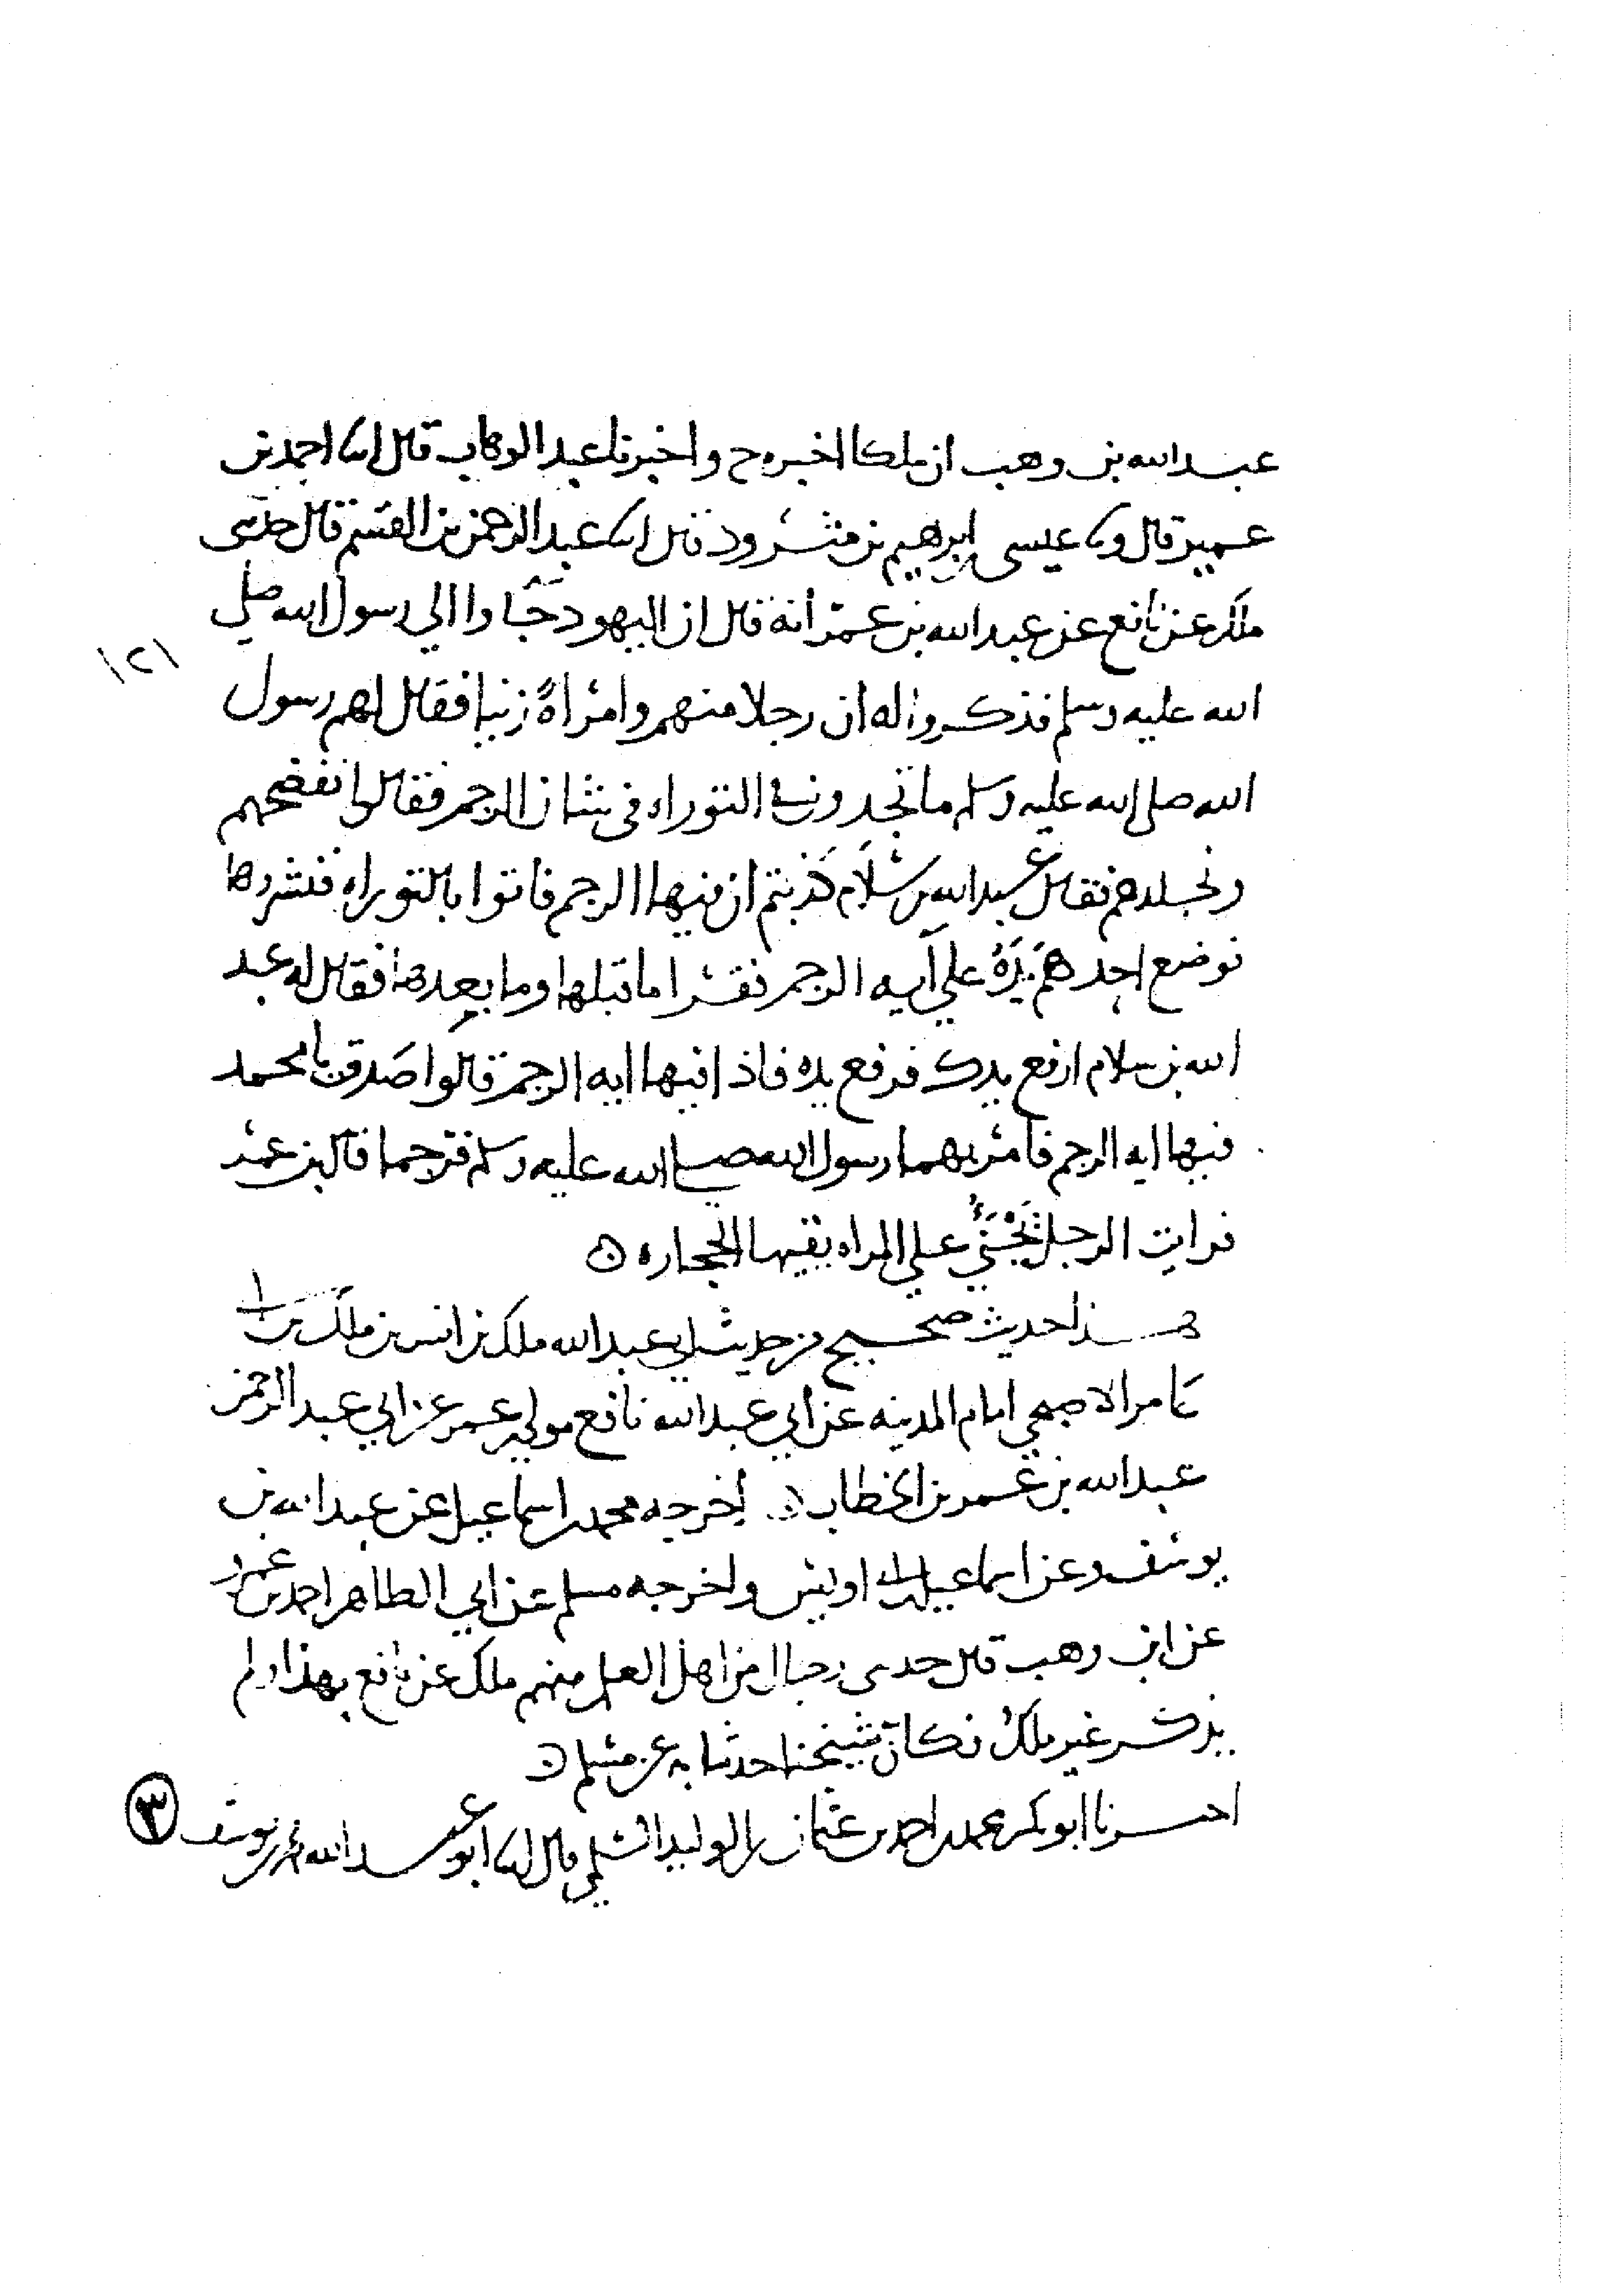 عبد الله بن وهب ان ملكا اخبره ح واخبرنا عبد الوهاب قال انا احمد بن
عمير قال ونا عيسى ابرهيم بن مثرود قال انا عبد الرحمن بن القسم قال حدثني
ملك عن نافع عن عبد الله بن عمر أنه قال ان اليهود جاوا الي رسول الله صلي
الله عليه وسلم فذكروا له ان رجلا منهم وامراة زنيا فقال لهم رسول
الله صلى الله عليه وسلم ما تجدون في التوراه في شان الرجم فقالوا نفضحهم
ونجلدهم فقال عبد الله بن سلام كذبتم ان فيها الرجم فاتوا بالتوراه فنشروها
فوضع احدهم يده علي آيه الرجم فقرا ما قبلها وما بعدها فقال له عبد
الله بن سلام ارفع يدك فرفع يده فاذا فيها ايه الرجم قالوا صدقت يا محمد
فيها ايه الرجم فامر بهما رسول الله صلى الله عليه وسلم فرجما قال بن عمر
فرايت الرجل يجني علي المراه يقيها الحجاره ن
هذا حديث صحيح من حديث ابي عبد الله ملك بن انس بن ملك بن ا
عامر الاصبحي امام المدينه عن ابي عبد الله نافع مولي بن عمر عن ابي عبد الرحمن
عبد الله بن عمر بن الخطاب ن اخرجه محمد بن اسماعيل عن عبد الله بن
يوسف وعن اسماعيل بن ابي اويس واخرجه مسلم عن ابي الطاهر احمد بن عمرو
عن ابن وهب قال حدثني رجال من اهل العلم منهم ملك عن نافع بهذا ولم
يذكر غير ملك فكان شيخنا حدثنا به عن مسلم ن
اخبرنا ابو بكر محمد بن احمد بن عثمان بن الوليد السلمي قال انا ابو عبد الله محمد بن يوسف
١٢١
٣